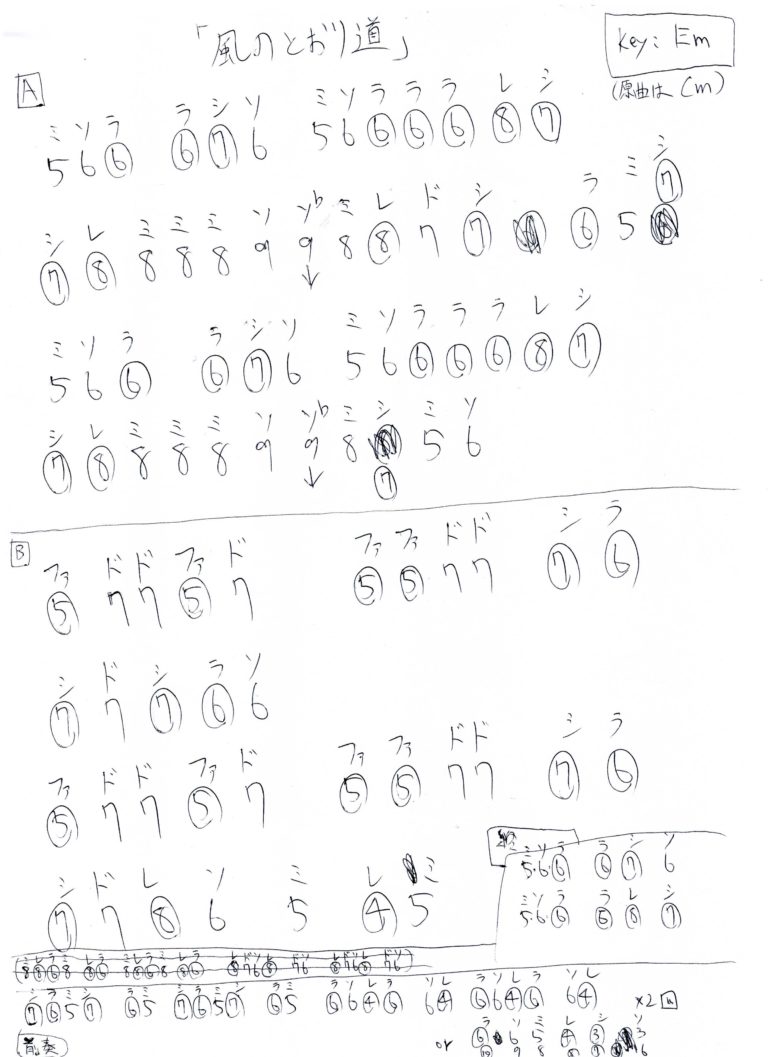 「風のとおり道」
Key: Em
(原曲は Cm)
A
ミ ソ ラ ラ シ ソ ミ ソ ラ ラ ラ レ シ
5 6 ⑥ ⑥ ⑦ 6 5 6 ⑥ ⑥ ⑥ ⑧ ⑦
シ レ ミ ミ ミ ソ ソb ミ レ ド シ ラ ミ シ
⑦ ⑧ 8 8 8 9 9 8 ⑧ 7 ⑦ ⑥ 5 ⑦
↓
ミ ソ ラ ラ シ ソ ミ ソ ラ ラ ラ レ シ
5 6 ⑥ ⑥ ⑦ 6 5 6 ⑥ ⑥ ⑥ ⑧ ⑦
シ レ ミ ミ ミ ソ ソb ミ シ ミ ソ
⑦ ⑧ 8 8 8 9 9 8 ⑦ 5 6
↓
B
ファ ド ド ファ ド ファ ファ ド ド シ ラ
⑤ 7 7 ⑤ 7 ⑤ ⑤ 7 7 ⑦ ⑥
シ ド シ ラ ソ
⑦ 7 ⑦ ⑥ 6
ファ ド ド ファ ド ファ ファ ド ド シ ラ
⑤ 7 7 ⑤ 7 ⑤ ⑤ 7 7 ⑦ ⑥
シ ド レ ソ ミ レ ミ
⑦ 7 ⑧ 6 5 ④ 5
ミ ソ ラ ラ シ ソ
5・6・⑥ ⑥ ⑦ 6
ミ ソ ラ ラ レ シ
5・6・⑥ ⑥ ⑧ ⑦
シ ラ ミ シ ラ ミ シ ラ ミ シ ラ ミ ラ ソ レ ラ ソ レ ラ ソ レ ラ ソ レ
⑦ ⑥ 5 ⑦ ⑥ 5 ⑦ ⑥ 5 ⑦ ⑥ 5 ⑥ 6 ④ ⑥ 6 ④ ⑥ 6 ④ ⑥ 6 ④ ×2
前奏
or
ラ ソ ミ レ シ ソ
⑥ 6 5 ④ ③ 3